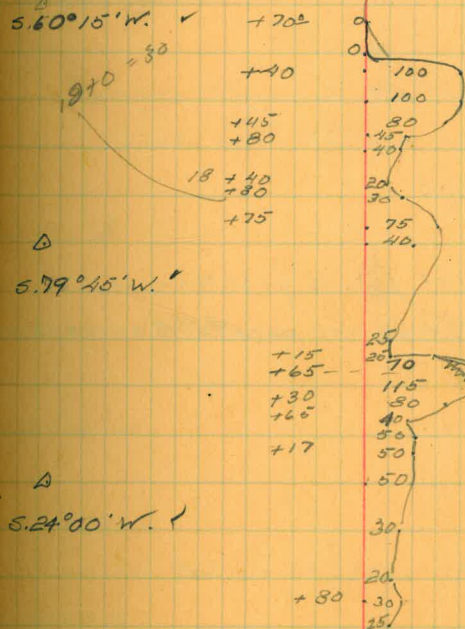 S.60°15'W. +70° 0
0
19+0 = 30
+40 100
100
+45 80
+80 45
40
18 +40 20
+80 30
+75 75
40
S.79°45'W.
25
+15 20
+65 70
+30 115
+65 80
40
50
+17 50
50
S.24°00'W.
30
20
+80 30
25